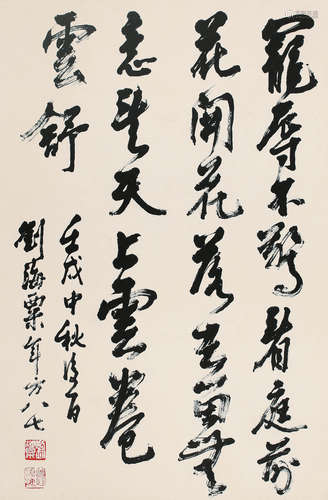 寵辱不驚看庭前
花開花落去留無
意望天上雲卷
雲舒
壬戌中秋後一日
劉海粟年方八七